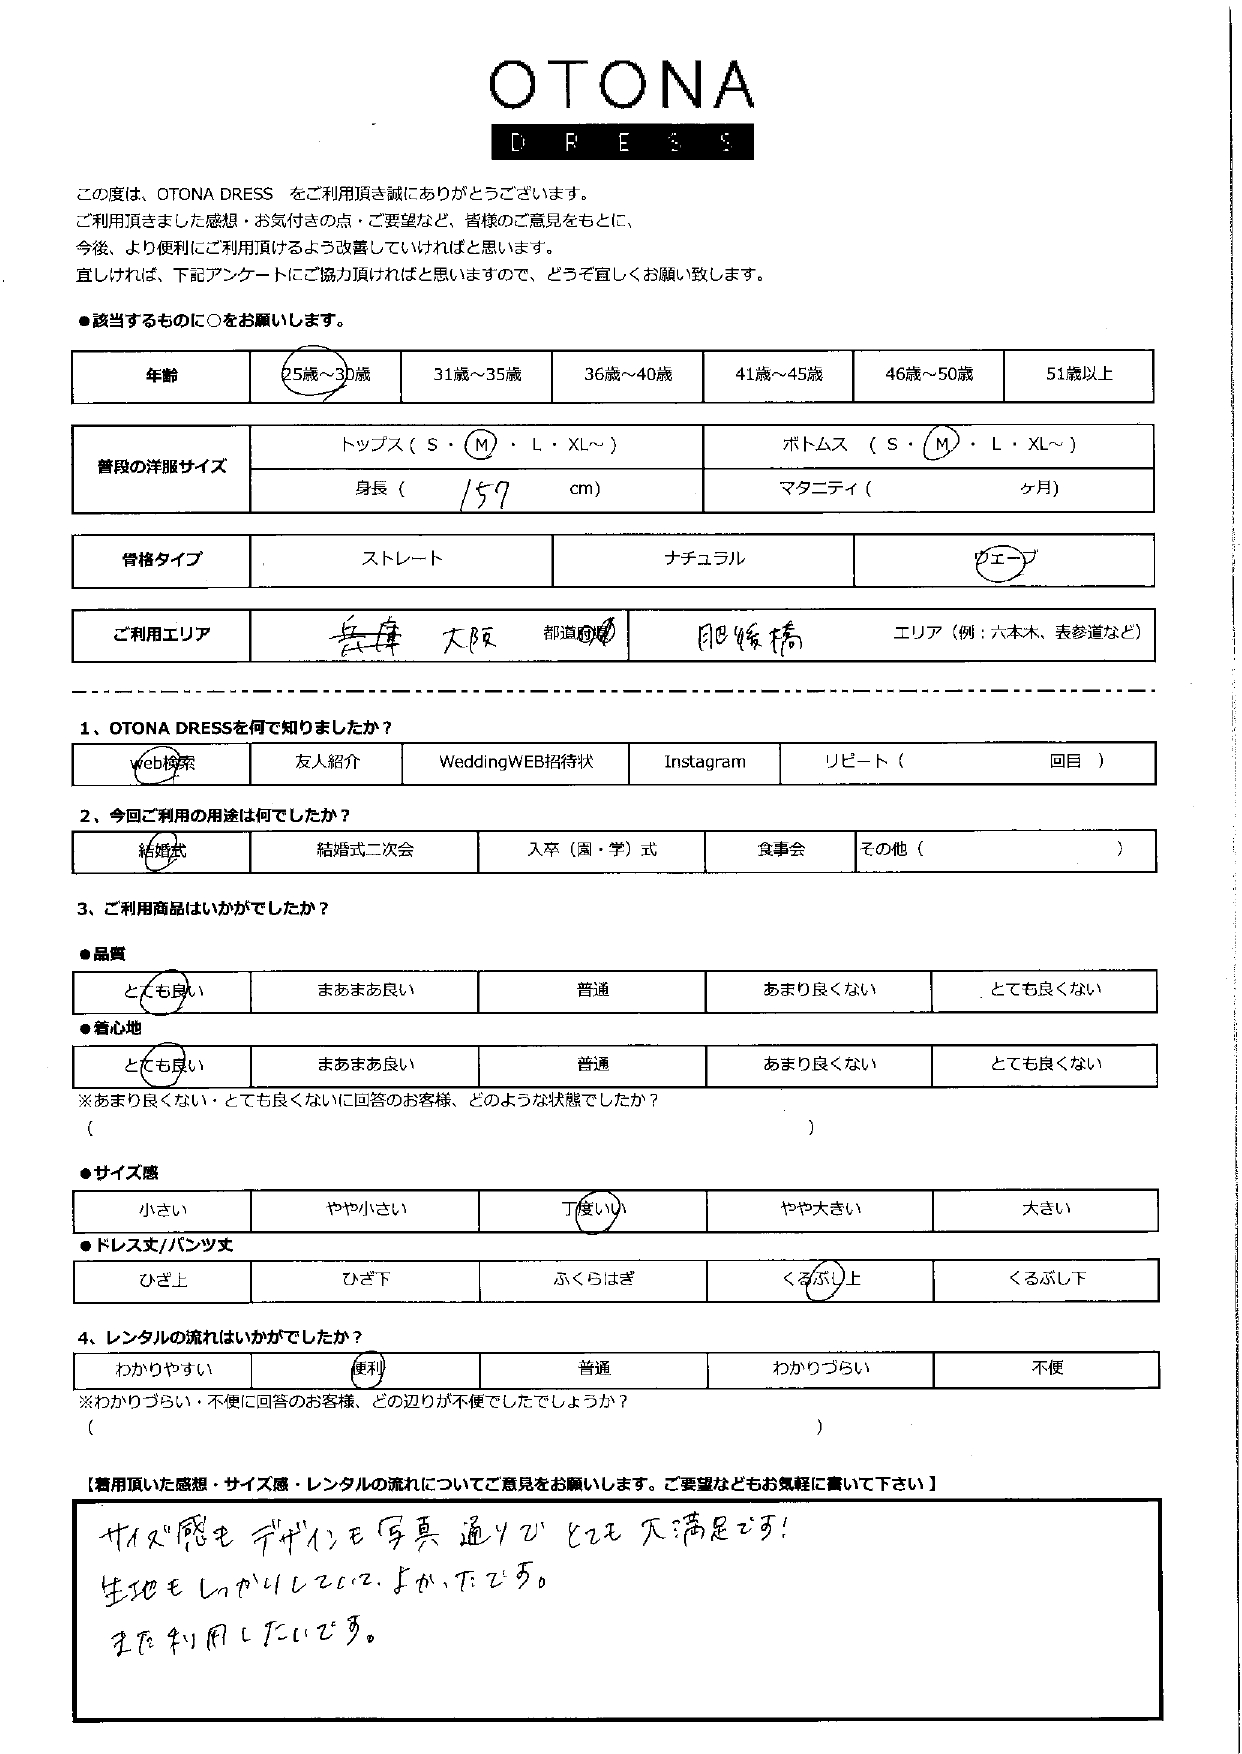 OTONA
DRESS
この度は、OTONA DRESS をご利用頂き誠にありがとうございます。
ご利用頂きました感想・お気付きの点・ご要望など、皆様のご意見をもとに、
今後、より便利にご利用頂けるよう改善していければと思います。
宜しければ、下記アンケートにご協力頂ければと思いますので、どうぞ宜しくお願い致します。
●該当するものに○をお願いします。
年齢 25歳～30歳 31歳～35歳 36歳～40歳 41歳～45歳 46歳～50歳 51歳以上
普段の洋服サイズ トップス ( S ・ M ・ L ・ XL～ ) ボトムス ( S ・ M ・ L ・ XL～ )
身長 ( 157 cm) マタニティ ( ヶ月)
骨格タイプ ストレート ナチュラル ウェーブ
ご利用エリア 兵庫 大阪 都道府県 肥後橋 エリア（例：六本木、表参道など）
1、OTONA DRESSを何で知りましたか？
web検索 友人紹介 WeddingWEB招待状 Instagram リピート（ 回目 ）
2、今回ご利用の用途は何でしたか？
結婚式 結婚式二次会 入卒（園・学）式 食事会 その他（ ）
3、ご利用商品はいかがでしたか？
●品質
とても良い まあまあ良い 普通 あまり良くない とても良くない
●着心地
とても良い まあまあ良い 普通 あまり良くない とても良くない
※あまり良くない・とても良くないに回答のお客様、どのような状態でしたか？
( )
●サイズ感
小さい やや小さい 丁度いい やや大きい 大きい
●ドレス丈/パンツ丈
ひざ上 ひざ下 ふくらはぎ くるぶし上 くるぶし下
4、レンタルの流れはいかがでしたか？
わかりやすい 便利 普通 わかりづらい 不便
※わかりづらい・不便に回答のお客様、どの辺りが不便でしたでしょうか？
( )
【着用頂いた感想・サイズ感・レンタルの流れについてご意見をお願いします。ご要望などもお気軽に書いて下さい】
サイズ感もデザインも写真通りでとても大満足です！
生地もしっかりしていて、よかったです。
また利用したいです。